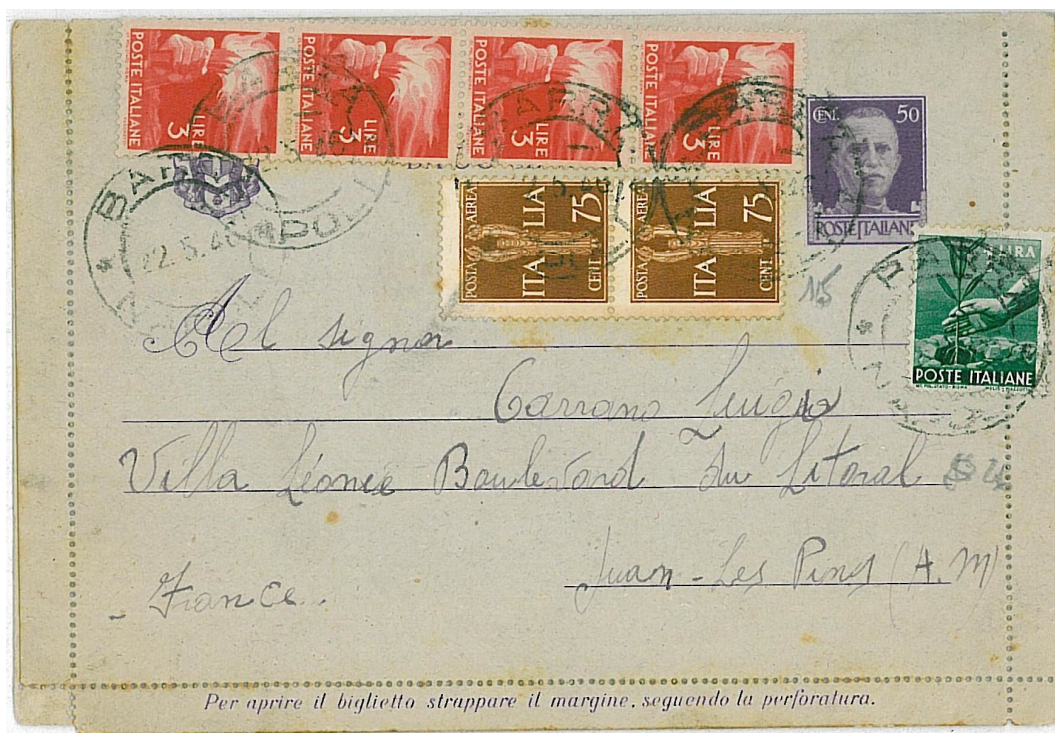 POSTE ITALIANE LIRE 3
POSTE ITALIANE LIRE 3
POSTE ITALIANE LIRE 3
POSTE ITALIANE LIRE 3
CENT. 50
POSTE ITALIANE
POSTA AEREA ITALIA CENT 75
POSTA AEREA ITALIA CENT 75
BARRA
22.5.46
NAPOLI
15
LIRA
POSTE ITALIANE
Al signor
Carrano Luigio
Villa Léonie Boulevard du Litoral
Juan-Les Pins (A.M)
France.
Per aprire il biglietto strappare il margine, seguendo la perforatura.